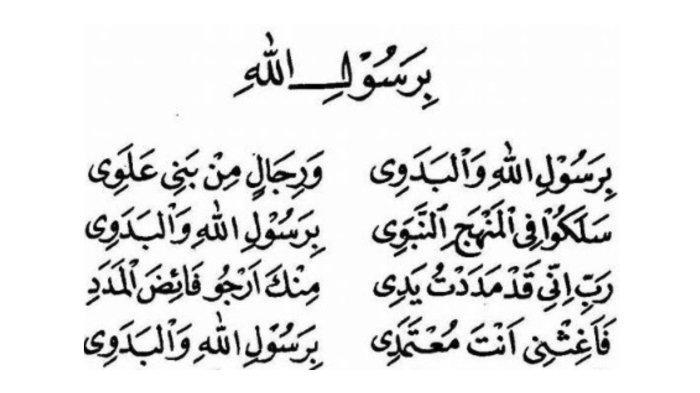 بِرَسُوْلِ اللهِ
بِرَسُوْلِ اللهِ وَالْبَدَوِى وَرِجَالٍ مِنْ بَنِى عَلَوِى
سَلَكُوْا فِى الْمَنْهَجِ النَّبَوِى بِرَسُوْلِ اللهِ وَالْبَدَوِى
رَبِّ اِنِّى قَدْ مَدَدْتُ يَدِى مِنْكَ اَرْجُو فَائِضَ الْمَدَدِ
فَاَغِثْنِى اَنْتَ مُعْتَمَدِى بِرَسُوْلِ اللهِ وَالْبَدَوِى